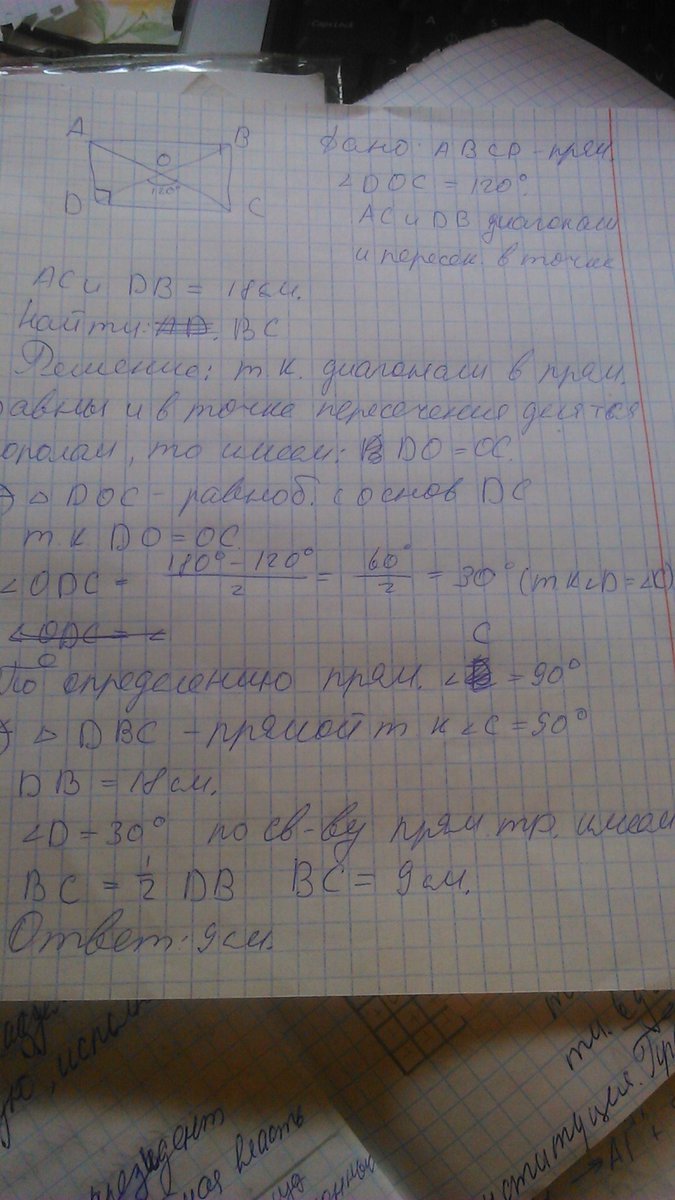 A
B
O
120°
D
C
Дано: ABCD - прям
∠DOC = 120°.
AC и DB диагонали
и пересек. в точке
AC и DB = 18 см.
Найти: AD. BC
Решение: т.к. диагонали в прям.
равны и в точке пересечения делятся
ополам, то имеем: DO = OC.
△ DOC - равноб. с основ DC
т к DO = OC.
∠ODC = 180° - 120° / 2 = 60° / 2 = 30° (т к ∠D = ∠C)
∠ODC = ∠
По определению прям. ∠C = 90°
△ DBC - прямой т к ∠C = 90°
DB = 18 см.
∠D = 30° по св-ву прям. тр. имеем
BC = 1/2 DB BC = 9 см.
Ответ: 9 см.
президент
ная власть